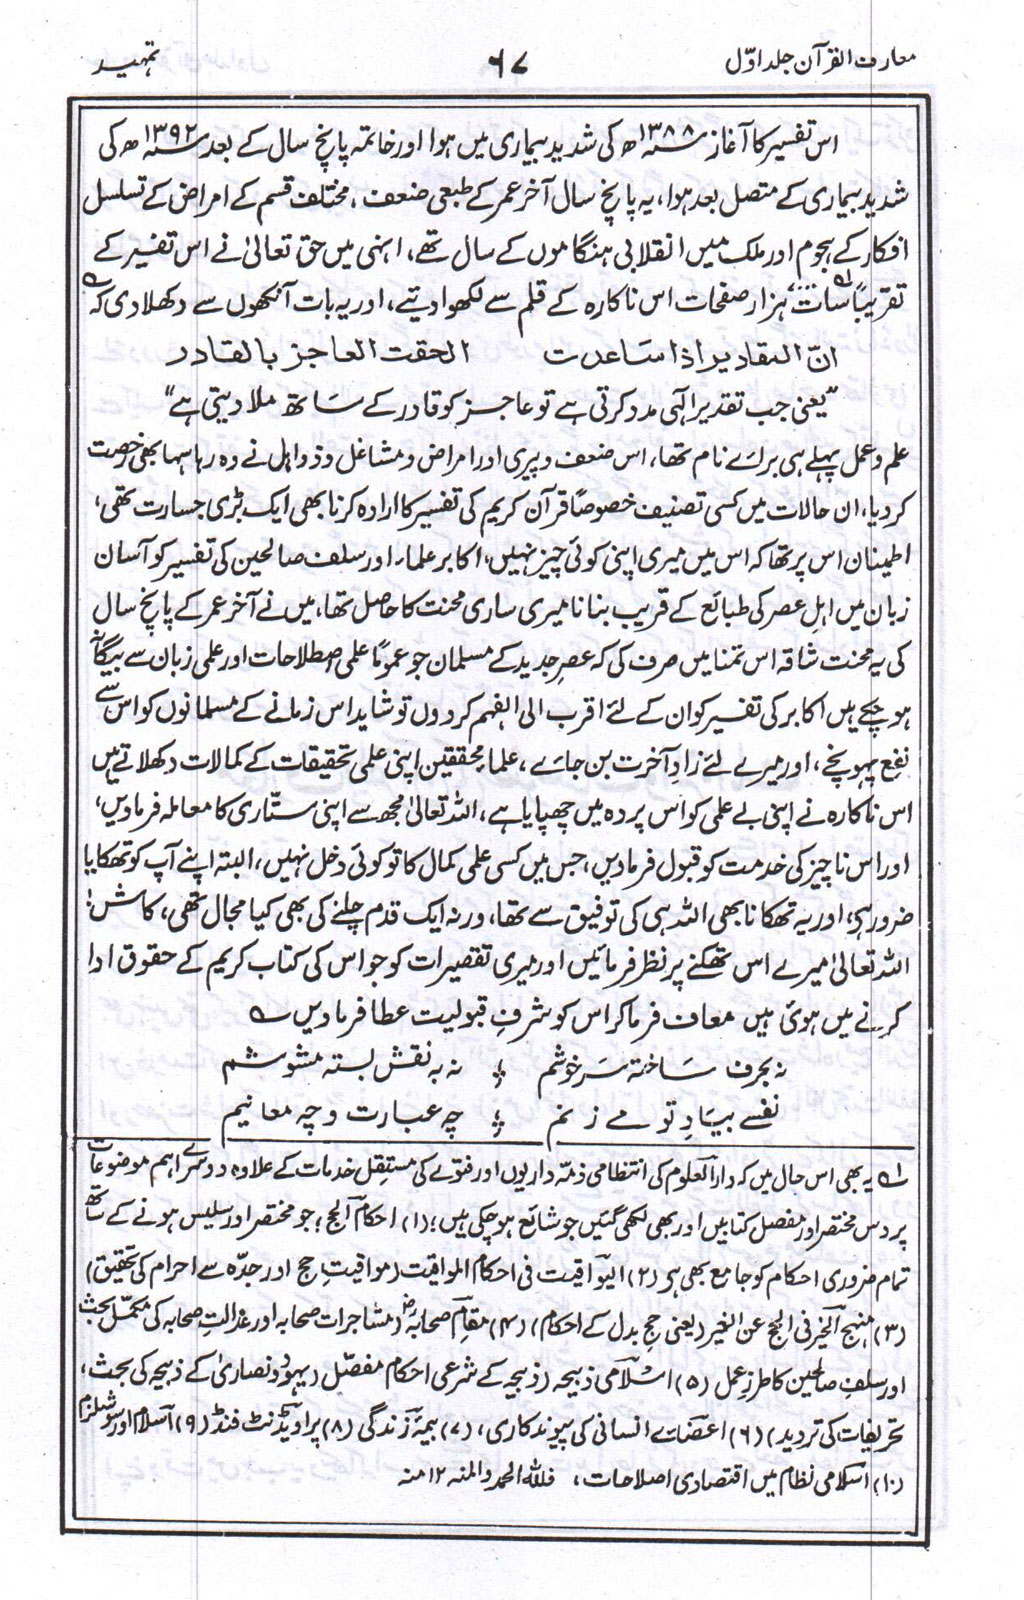 معارف القرآن جلد اوّل
۶۷
تمہید
اس تفسیر کا آغاز ۱۳۸۸ھ کی شدید بیماری میں ہوا اور خاتمہ پانچ سال کے بعد ۱۳۹۲ھ کی
شدید بیماری کے متصل بعد ہوا، یہ پانچ سال آخر عمر کے طبعی ضعف، مختلف قسم کے امراض کے تسلسل
افکار کے ہجوم اور ملک میں انقلابی ہنگاموں کے سال تھے، انہی میں حق تعالیٰ نے اس تفسیر کے
تقریباً سات ہزار صفحات اس ناکارہ کے قلم سے لکھوا دیئے، اور یہ بات آنکھوں سے دکھلا دی کہ ؎
انّ المقادیر اذا ساعدت الحقت العاجز بالقادر
”یعنی جب تقدیر الٰہی مدد کرتی ہے تو عاجز کو قادر کے ساتھ ملا دیتی ہے“
علم و عمل پہلے ہی برائے نام تھا، اس ضعف و پیری اور امراض و مشاغل و ذواہل نے وہ رہا سہا بھی رخصت
کر دیا، ان حالات میں کسی تصنیف خصوصاً قرآن کریم کی تفسیر کا ارادہ کرنا بھی ایک بڑی جسارت تھی،
اطمینان اس پر تھا کہ اس میں میری اپنی کوئی چیز نہیں، اکابر علماء اور سلف صالحین کی تفسیر کو آسان
زبان میں اہلِ عصر کی طبائع کے قریب بنانا میری ساری محنت کا حاصل تھا، میں نے آخر عمر کے پانچ سال
کی یہ محنت شاقہ اس تمنا میں صرف کی کہ عصرِ جدید کے مسلمان جو عموماً علمی اصطلاحات اور علمی زبان سے بیگانہ
ہو چکے ہیں اکابر کی تفسیر کو ان کے لئے اقرب الی الفہم کر دوں تو شاید اس زمانے کے مسلمانوں کو اس سے
نفع پہونچے، اور میرے لئے زادِ آخرت بن جائے، علماء محققین اپنی علمی تحقیقات کے کمالات دکھلاتے ہیں
اس ناکارہ نے اپنی بے علمی کو اس پردہ میں چھپایا ہے، اللہ تعالیٰ مجھ سے اپنی ستّاری کا معاملہ فرمادیں،
اور اس ناچیز کی خدمت کو قبول فرمادیں، جس میں کسی علمی کمال کا تو کوئی دخل نہیں، البتہ اپنے آپ کو تھکایا
ضرور ہے، اور یہ تھکانا بھی اللہ ہی کی توفیق سے تھا، ورنہ ایک قدم چلنے کی بھی کیا مجال تھی، کاش!
اللہ تعالیٰ میرے اس تھکنے پر نظر فرمائیں اور میری تقصیرات کو جو اس کی کتاب کریم کے حقوق ادا
کرنے میں ہوئی ہیں معاف فرما کر اس کو شرفِ قبولیت عطا فرمادیں ؎
نہ بحرف ساختہ سرخوشم ؛ نہ بہ نقش بستہ مشوشم
نفسے بیادِ تو مے زنم ؛ چہ عبارت و چہ معانیم
لہ یہ بھی اس حال میں کہ دار العلوم کی انتظامی ذمّہ داریوں اور فتوے کی مستقل خدمات کے علاوہ دوسرے اہم موضوعات
پر دس مختصر اور مفصل کتابیں اور بھی لکھی گئیں جو شائع ہو چکی ہیں؛ (۱) احکام الحج؛ جو مختصر اور سلیس ہونے کے ساتھ
تمام ضروری احکام کو جامع بھی ہے (۲) الیواقیت فی احکام المواقیت (مواقیتِ حج اور جدّہ سے احرام کی تحقیق)
(۳) منہج الخیر فی الحج عن الغیر (یعنی حج بدل کے احکام) (۴) مقام صحابہؓ (مشاجرات صحابہ اور عدالتِ صحابہ کی مکمّل بحث
اور سلفِ صالحین کا طرزِ عمل (۵) اسلامی ذبیحہ (ذبیحہ کے شرعی احکام مفصّل (یہود و نصاریٰ کے ذبیحہ کی بحث،
تحریفات کی تردید) (۶) اعضائے انسانی کی پیوند کاری، (۷) بیمۂ زندگی (۸) پراویڈنٹ فنڈ (۹) اسلام اور سوشلزم
(۱۰) اسلامی نظام میں اقتصادی اصلاحات، فللہ الحمد والمنہ ۱۲ منہ